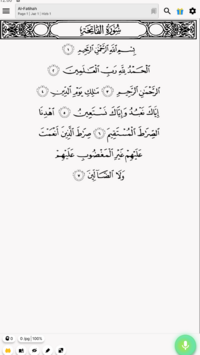 Al-Fatihah
Page 1 | Juz 1 | Hizb 1
سُورَةُ الفَاتِحَةِ
بِسْمِ اللَّهِ الرَّحْمَٰنِ الرَّحِيمِ ١
الْحَمْدُ لِلَّهِ رَبِّ الْعَالَمِينَ ٢
الرَّحْمَٰنِ الرَّحِيمِ ٣ مَالِكِ يَوْمِ الدِّينِ ٤
إِيَّاكَ نَعْبُدُ وَإِيَّاكَ نَسْتَعِينُ ٥ اهْدِنَا
الصِّرَاطَ الْمُسْتَقِيمَ ٦ صِرَاطَ الَّذِينَ أَنْعَمْتَ
عَلَيْهِمْ غَيْرِ الْمَغْضُوبِ عَلَيْهِمْ
وَلَا الضَّالِّينَ ٧